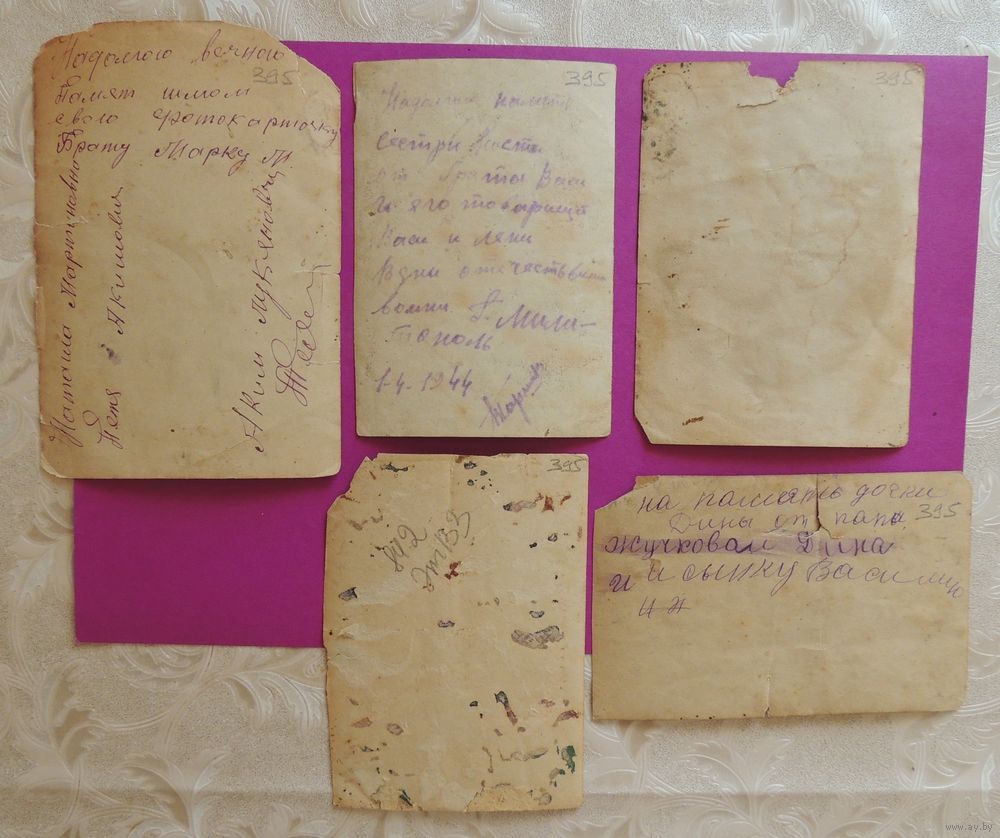 Надолгою вечною
395
Памят шлом
свою фотокарточку
Брату Марку М
Наташа Мартиновна
Петя Акимовия
Аким Лукянович
395
Надолгию память
сестри Насти
от брата Васи
и его товарища
Васи и Лени
Вдни отечествен
волни г. Мили-
тополь
1-4-1944
395
395
842
395
на память дочки
Дины от папа
395
Жучковай Дина
и и сынку Васи